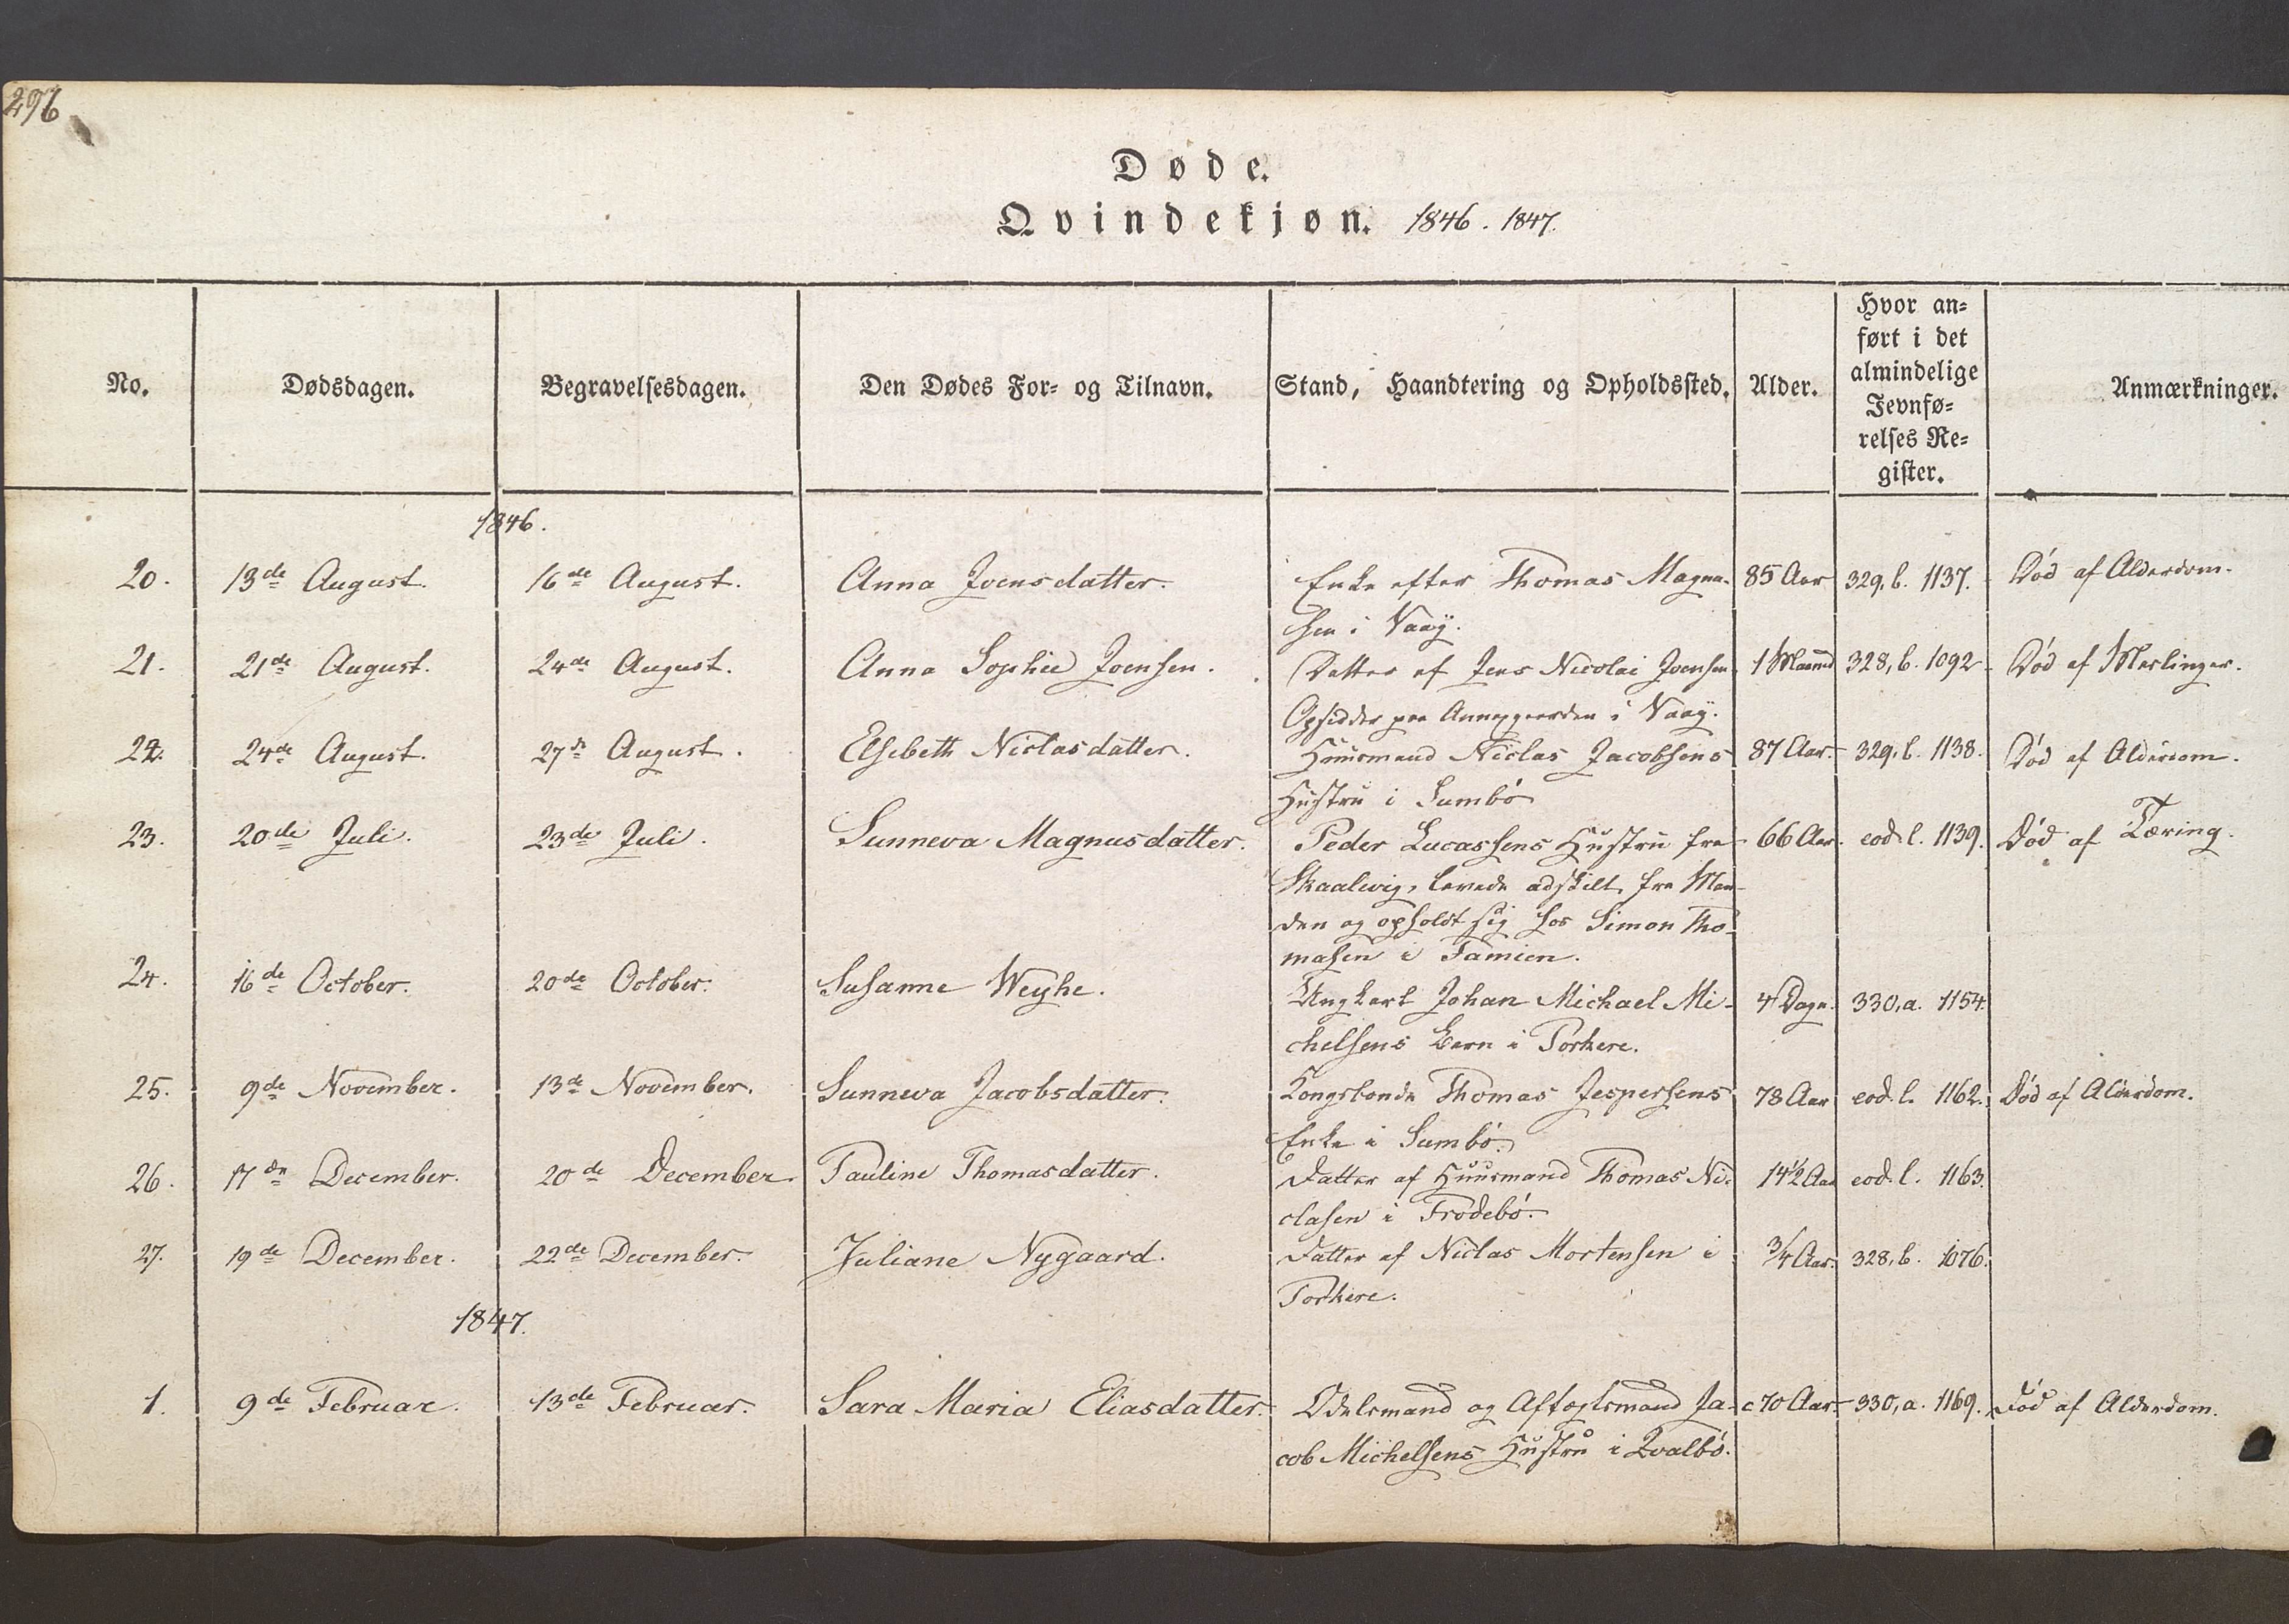 296
Døde.
Qvindekjøn. 1846. 1847.
No. Dødsdagen. Begravelsesdagen. Den Dødes For- og Tilnavn. Stand, Haandtering og Opholdssted. Alder. Hvor an=
ført i det
almindelige
Jevnfø=
relses Re=
gister. Anmærkninger.
1846.
20. 13de August. 16de August. Anna Joensdatter. Enke efter Thomas Magnu- 85 Aar 329, b. 1137. Død af Alderdom.
sen i Vaag.
21. 21de August. 24de August. Anna Sophie Joensen. Datter af Jens Nicolai Joensen 1 Maaned 328, b. 1092. Død af Meslinger.
Opsidder paa Annexgaarden i Vaag.
22. 24de August. 27de August. Elsebeth Niclasdatter. Huusmand Niclas Jacobsens 87 Aar. 329, b. 1138. Død af Alderdom.
Hustru i Sumbø
23. 20de Juli. 23de Juli. Sunneva Magnusdatter. Peder Lucassens Hustru fra 66 Aar. eod. l. 1139. Død af Tæring.
Skaalevig, levede adskilt fra Man-
den og opholdt sig hos Simon Tho-
masen i Famien.
24. 16de October. 20de October. Susanne Weyhe. Ungkarl Johan Michael Mi- 4 Dage. 330, a. 1154.
chelsens Barn i Porkere.
25. 9de November. 13de November. Sunneva Jacobsdatter. Kongsbonde Thomas Jespersens 78 Aar eod. l. 1162. Død af Alderdom.
Enke i Sumbø.
26. 17de December. 20de December. Pauline Thomasdatter. Datter af Huusmand Thomas Ni- 14½ Aar eod. l. 1163.
clasen i Frodebø.
27. 19de December. 22de December. Juliane Nygaard. Datter af Niclas Mortensen i 3/4 Aar. 328, b. 1076.
Porkere.
1847.
1. 9de Februar. 13de Februar. Sara Maria Eliasdatter. Odelsmand og Aftægtsmand Ja- c 70 Aar. 330, a. 1169. Død af Alderdom.
cob Michelsens Hustru i Qvalbø.